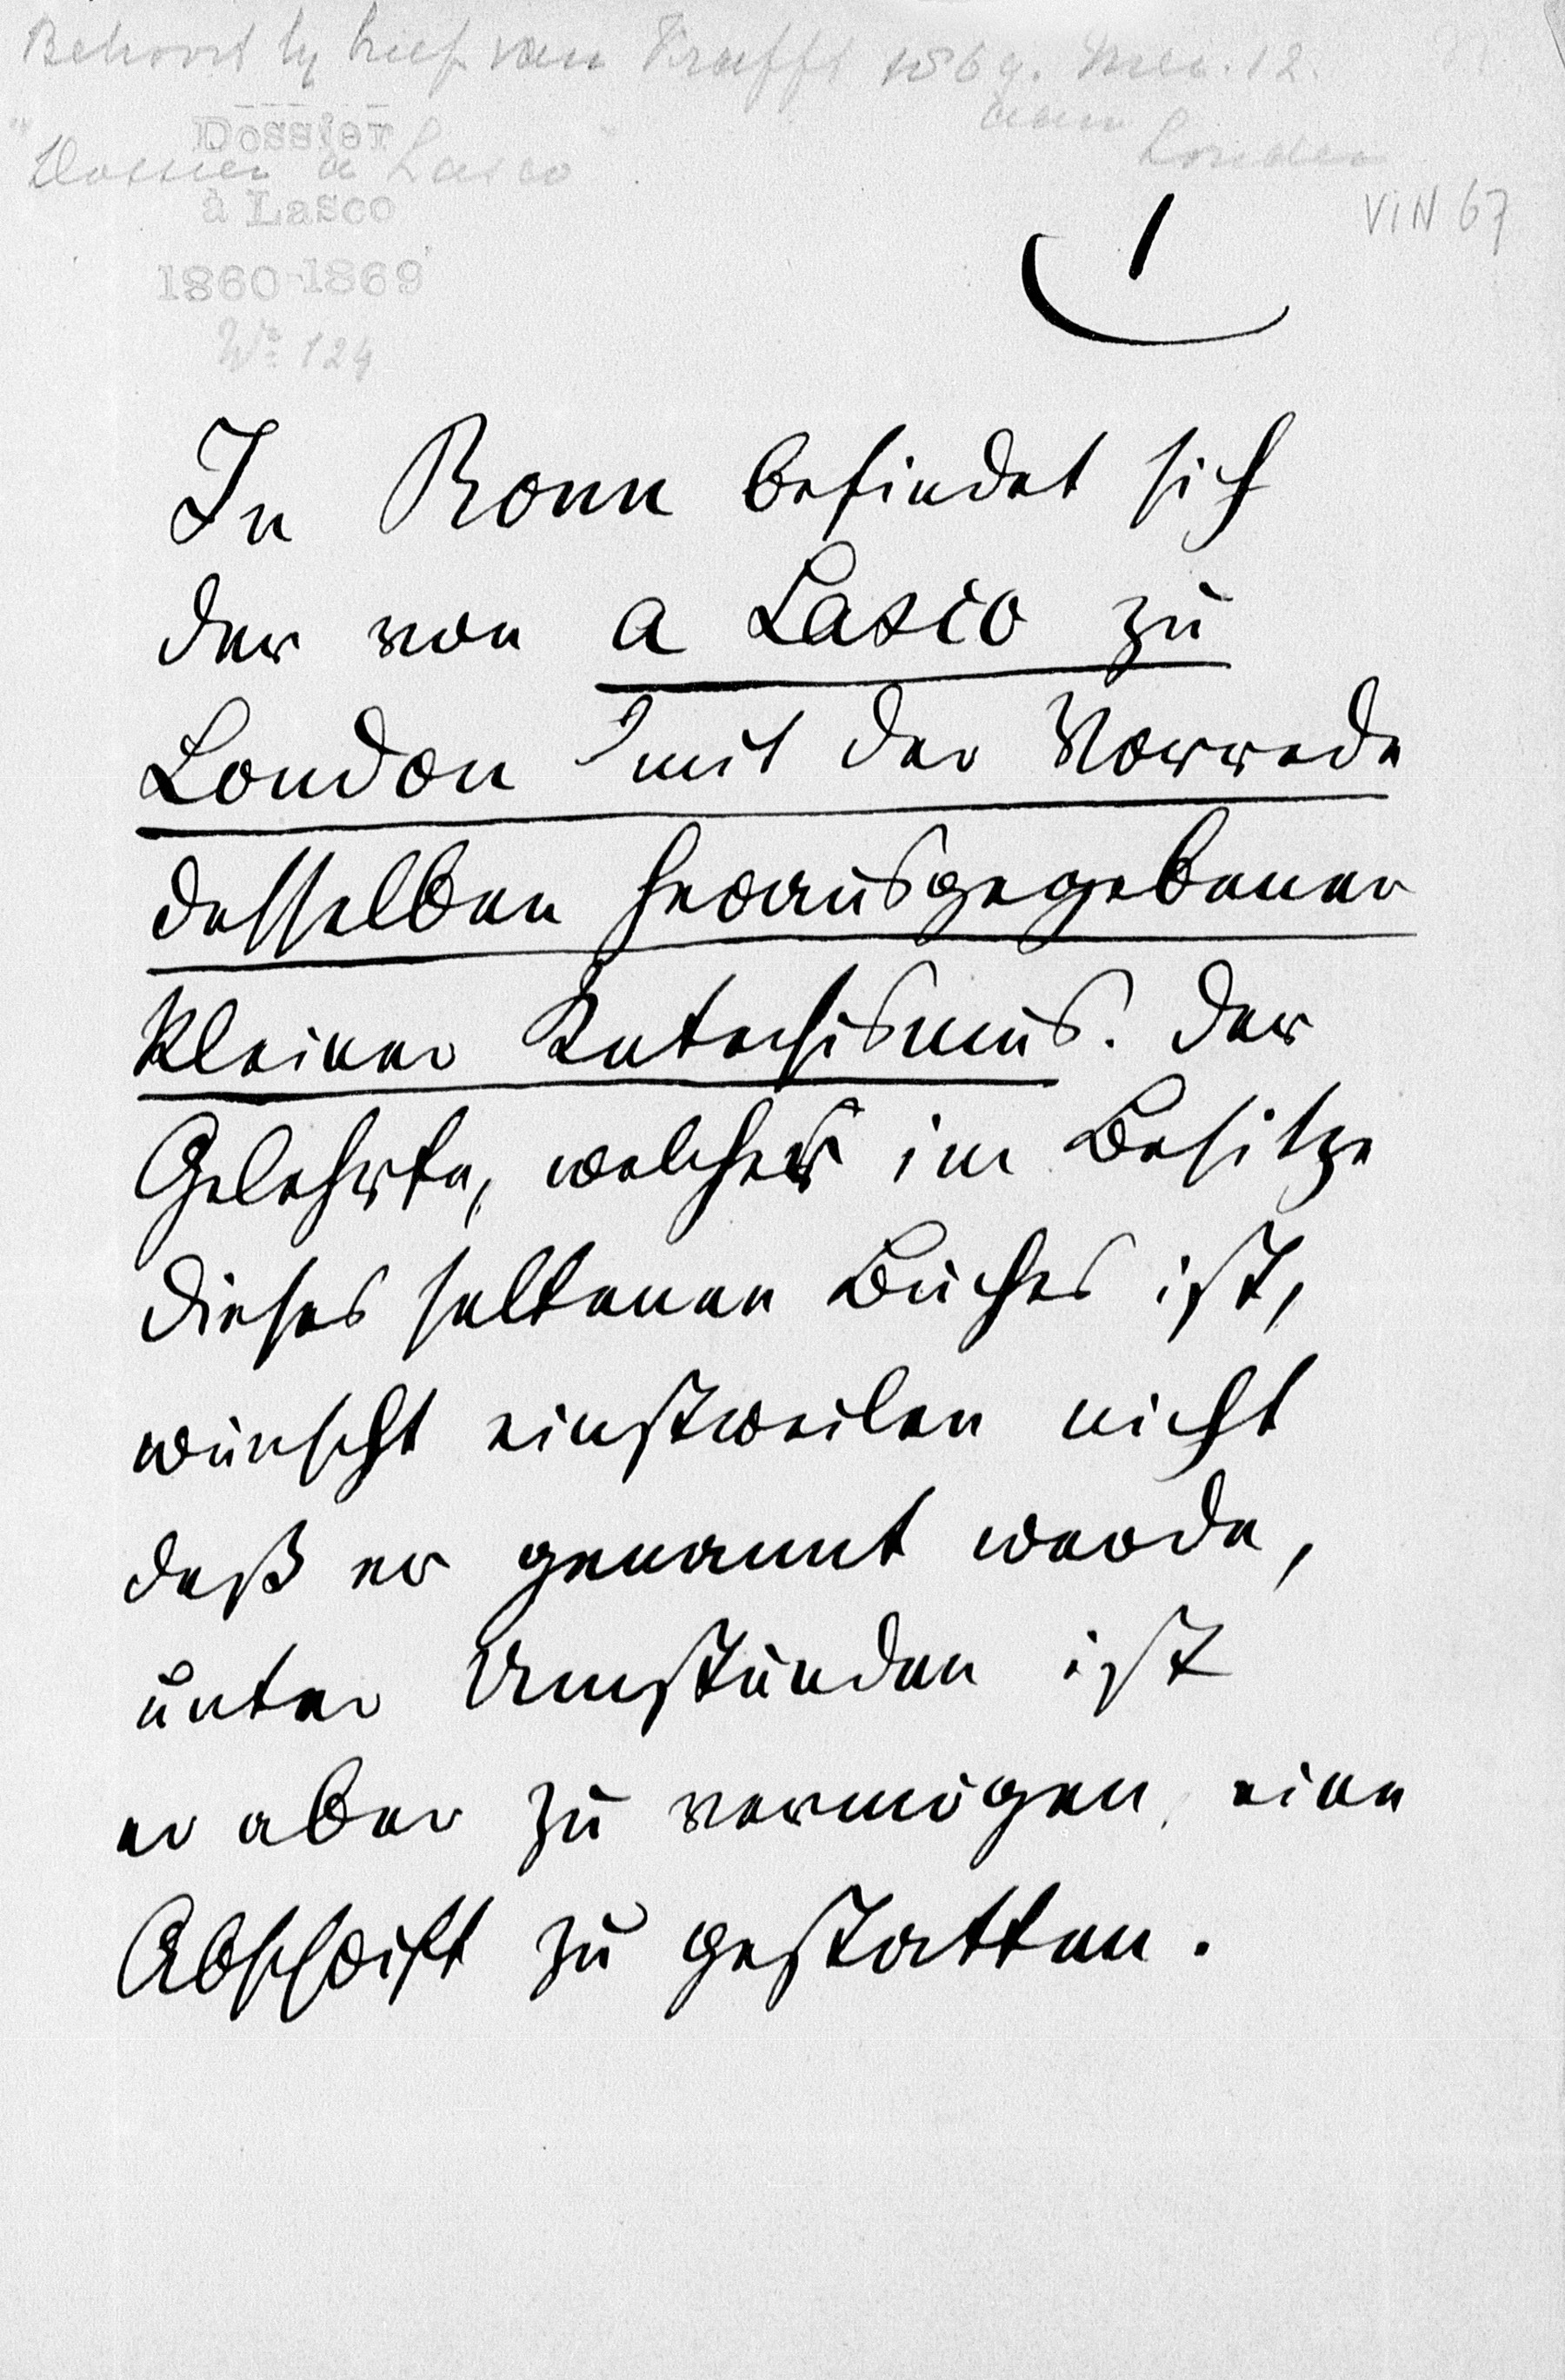 Behoort bij brief van Krafft 1869. Mei. 12.
aan
Londen
"Dossier a Lasco"
Dossier
à Lasco
1860-1869
No 124
VIN 67
1
In Bonn befindet sich
der von a Lasco zu
London mit der Vorrede
desselben herausgegebener
kleiner Katechismus. Der
Gelehrte, welcher im Besitze
dieses seltenen Buches ist,
wünscht einstweilen nicht
daß er genannt werde,
unter Umständen ist
er aber zu vermögen, eine
Abschrift zu gestatten.